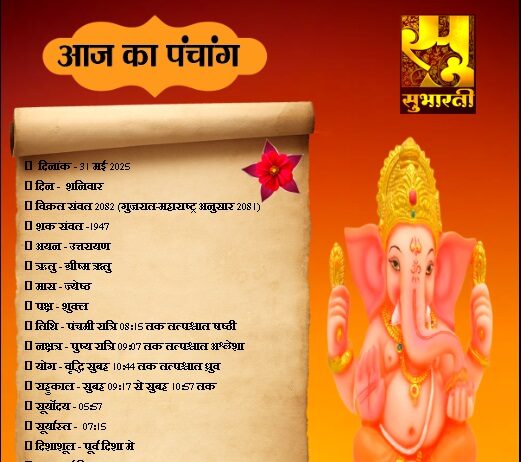 आज का पंचांग
सुभारती
दिनांक - 31 मई 2025
दिन - शनिवार
विक्रत संवत 2082 (गुजरात-महाराष्ट्र अनुसार 2081)
शक संवत -1947
अयन - उत्तरायण
ऋतु - ग्रीष्म ऋतु
मास - ज्येष्ठ
पक्ष - शुक्ल
तिथि - पंचमी रात्रि 08:15 तक तत्पश्चात षष्ठी
नक्षत्र - पुष्य रात्रि 09:07 तक तत्पश्चात अश्लेशा
योग - वृद्धि सुबह 10:44 तक तत्पश्चात ध्रुव
राहुकाल - सुबह 09:17 से सुबह 10:57 तक
सूर्योदय - 05:57
सूर्यास्त - 07:15
दिशाशूल - पूर्व दिशा मे